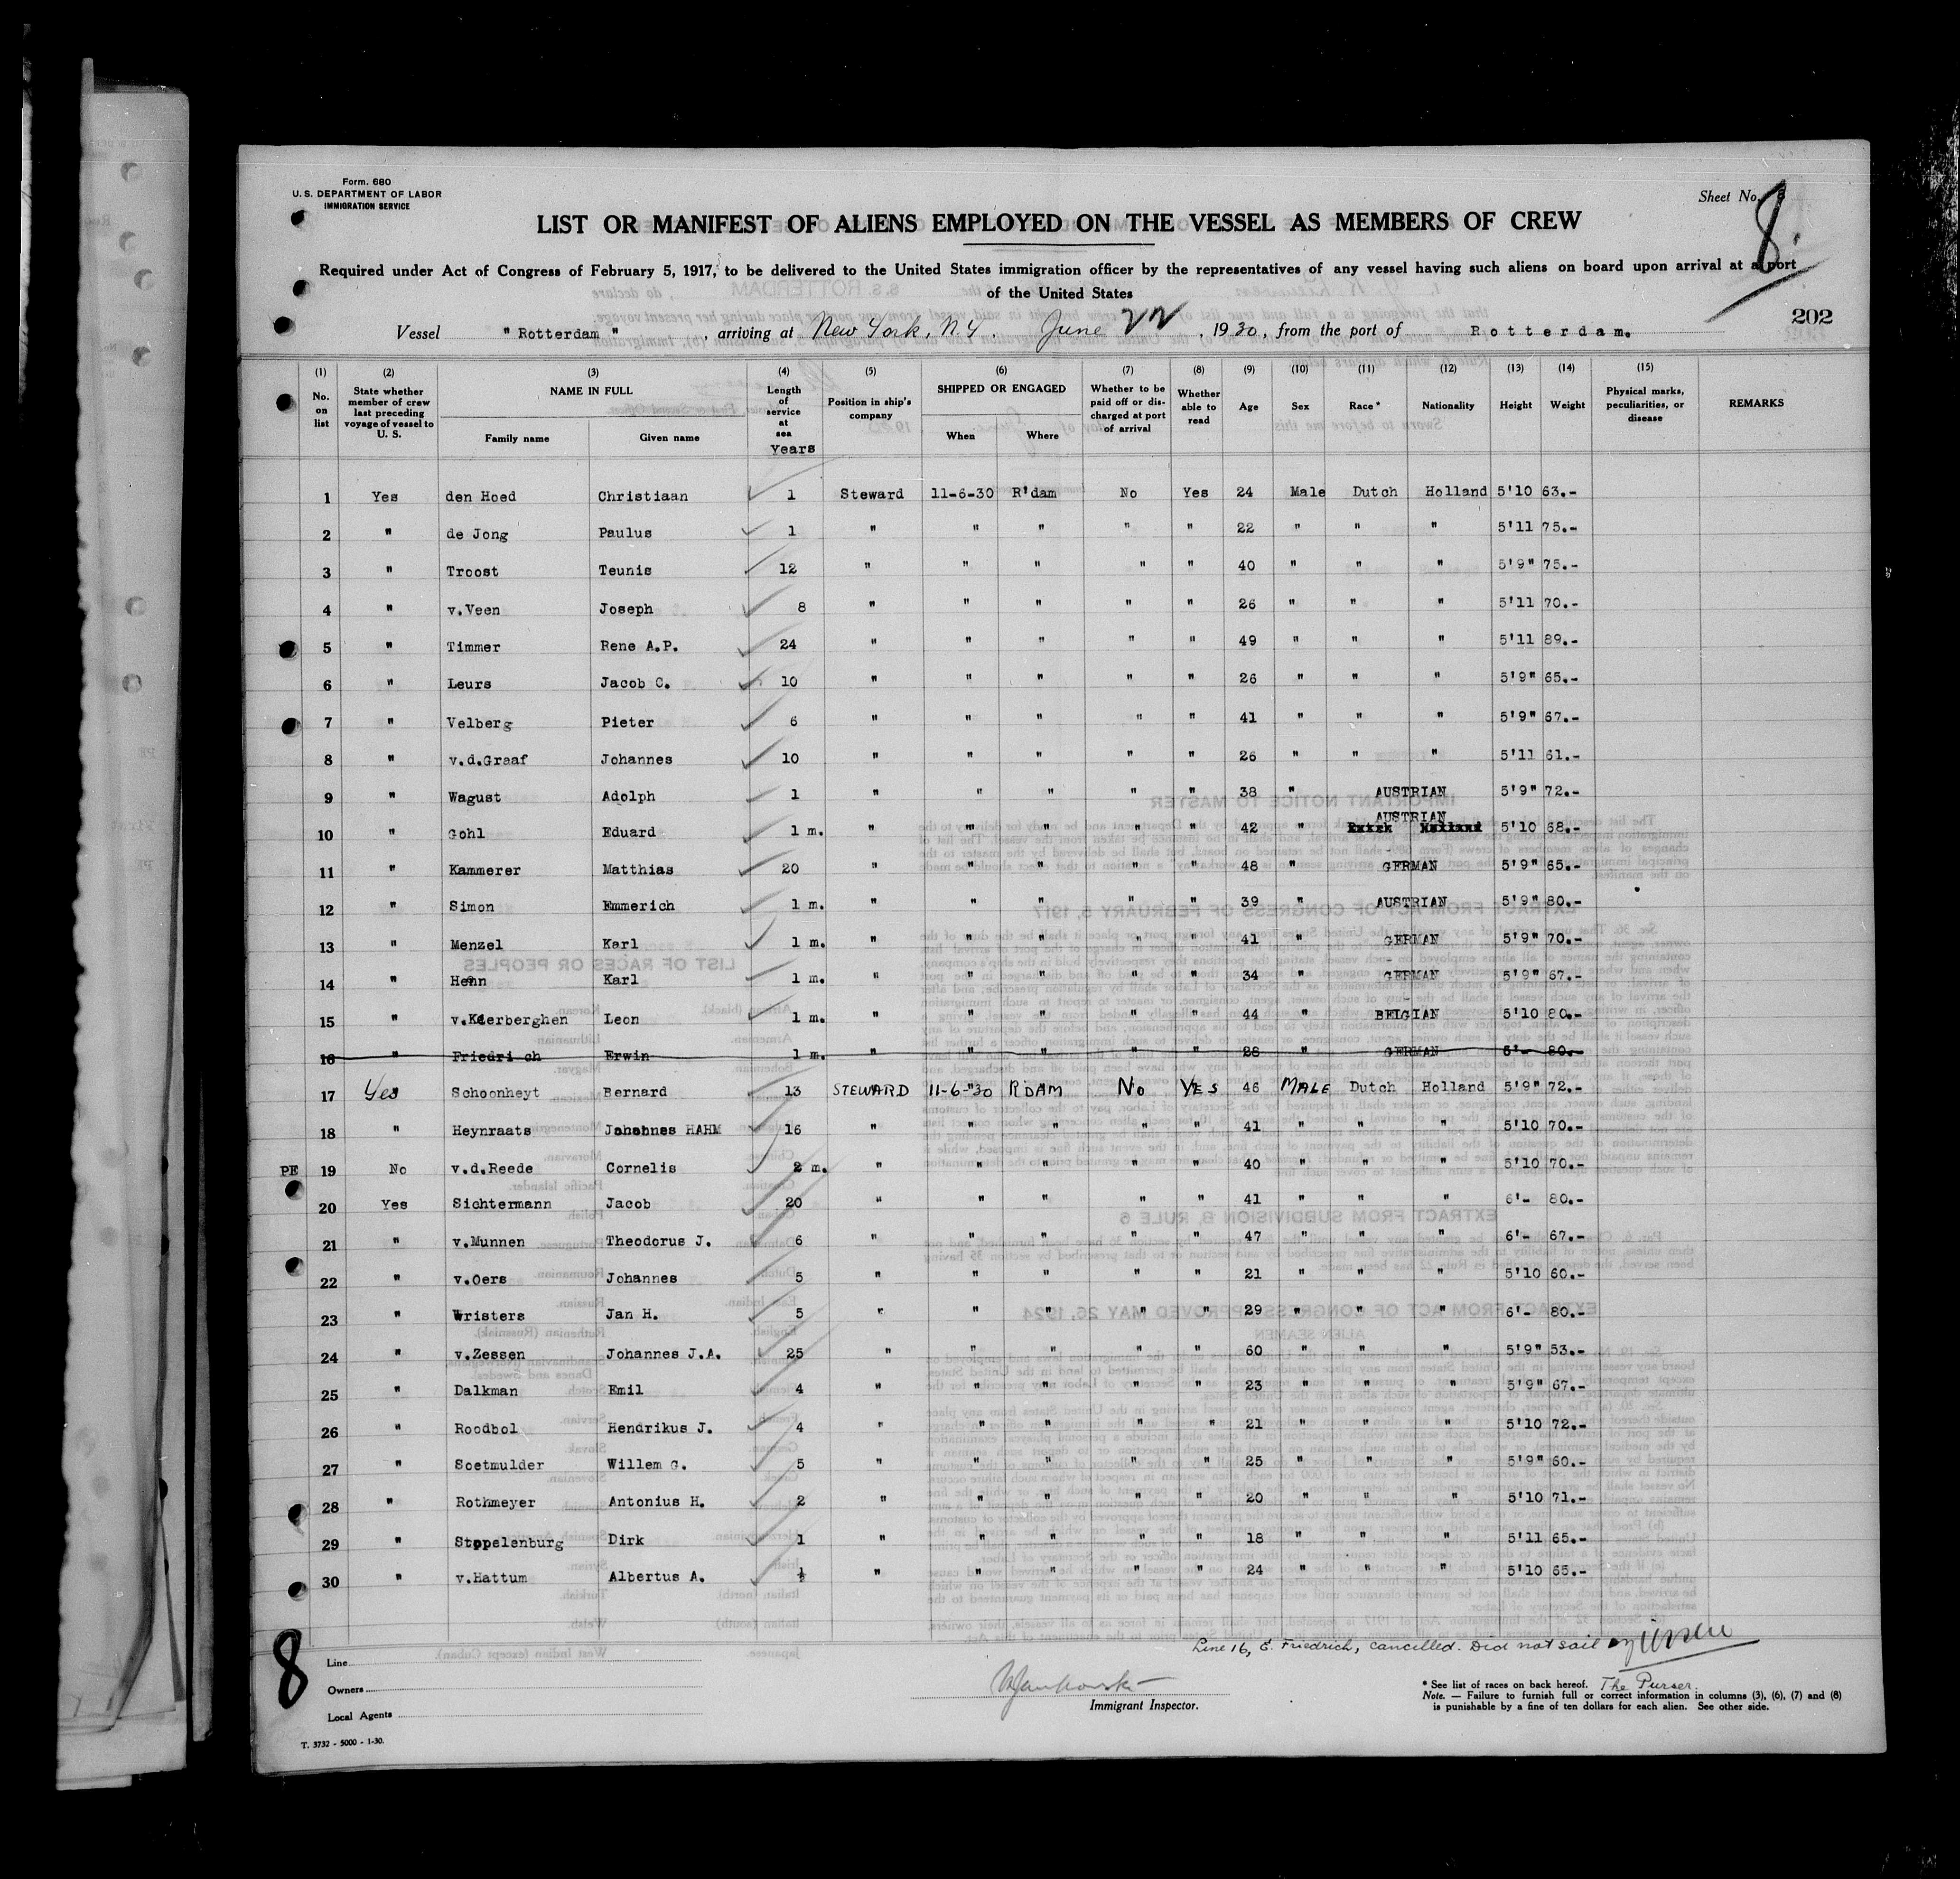 Form. 680
U. S. DEPARTMENT OF LABOR
IMMIGRATION SERVICE
Sheet No. 8
8
LIST OR MANIFEST OF ALIENS EMPLOYED ON THE VESSEL AS MEMBERS OF CREW
Required under Act of Congress of February 5, 1917, to be delivered to the United States immigration officer by the representatives of any vessel having such aliens on board upon arrival at a port
of the United States
202
Vessel "Rotterdam", arriving at New York, N.Y. June 22, 1930, from the port of Rotterdam.
(1) No. on list (2) State whether member of crew last preceding voyage of vessel to U. S. (3) NAME IN FULL Family name Given name (4) Length of service at sea Years (5) Position in ship's company (6) SHIPPED OR ENGAGED When Where (7) Whether to be paid off or discharged at port of arrival (8) Whether able to read (9) Age (10) Sex (11) Race* (12) Nationality (13) Height (14) Weight (15) Physical marks, peculiarities, or disease REMARKS
1 Yes den Hoed Christiaan 1 Steward 11-6-30 R'dam No Yes 24 Male Dutch Holland 5'10 63.-
2 " de Jong Paulus 1 " " " " " 22 " " " 5'11 75.-
3 " Troost Teunis 12 " " " " " 40 " " " 5'9" 75.-
4 " v.Veen Joseph 8 " " " " " 26 " " " 5'11 70.-
5 " Timmer Rene A.P. 24 " " " " " 49 " " " 5'11 89.-
6 " Leurs Jacob C. 10 " " " " " 26 " " " 5'9" 65.-
7 " Velberg Pieter 6 " " " " " 41 " " " 5'9" 67.-
8 " v.d.Graaf Johannes 10 " " " " " 26 " " " 5'11 61.-
9 " Wagust Adolph 1 " " " " " 38 " AUSTRIAN 5'9" 72.-
10 " Gohl Eduard 1 m. " " " " " 42 " AUSTRIAN 5'10 68.-
11 " Kammerer Matthias 20 " " " " " 48 " GERMAN 5'9" 65.-
12 " Simon Emmerich 1 m. " " " " " 39 " AUSTRIAN 5'9" 80.-
13 " Menzel Karl 1 m. " " " " " 41 " GERMAN 5'9" 70.-
14 " Henn Karl 1 m. " " " " " 34 " GERMAN 5'9" 67.-
15 " v.Keerberghen Leon 1 m. " " " " " 44 " BELGIAN 5'10 80.-
16 " Friedrich Erwin 1 m. " " " " " 28 " GERMAN 6'- 80.-
17 Yes Schoonheyt Bernard 13 STEWARD 11-6-"30 R'DAM No YES 46 MALE Dutch Holland 5'9" 72.-
18 " Heynraats Johannes HAHM 16 " " " " " 41 " " " 5'10 70.-
PE 19 No v.d.Reede Cornelis 2 m. " " " " " 40 " " " 5'10 70.-
20 Yes Sichtermann Jacob 20 " " " " " 41 " " " 6'- 80.-
21 " v.Munnen Theodorus J. 6 " " " " " 47 " " " 6'- 67.-
22 " v.Oers Johannes 5 " " " " " 21 " " " 5'10 60.-
23 " Wristers Jan H. 5 " " " " " 29 " " " 6'- 80.-
24 " v.Zessen Johannes J.A. 25 " " " " " 60 " " " 5'9" 53.-
25 " Dalkman Emil 4 " " " " " 23 " " " 5'9" 67.-
26 " Roodbol Hendrikus J. 4 " " " " " 21 " " " 5'10 72.-
27 " Soetmulder Willem G. 5 " " " " " 25 " " " 5'9" 60.-
28 " Rothmeyer Antonius H. 2 " " " " " 20 " " " 5'10 71.-
29 " Stppelenburg Dirk 1 " " " " " 18 " " " 5'11 65.-
30 " v.Hattum Albertus A. ½ " " " " " 24 " " " 5'10 65.-
Line 16, E. Friedrich, cancelled. Did not sail
8
Line
Owners
Local Agents
Immigrant Inspector.
* See list of races on back hereof. The Purser.
Note. — Failure to furnish full or correct information in columns (3), (6), (7) and (8)
is punishable by a fine of ten dollars for each alien. See other side.
T. 3732 - 5000 - 1-30.